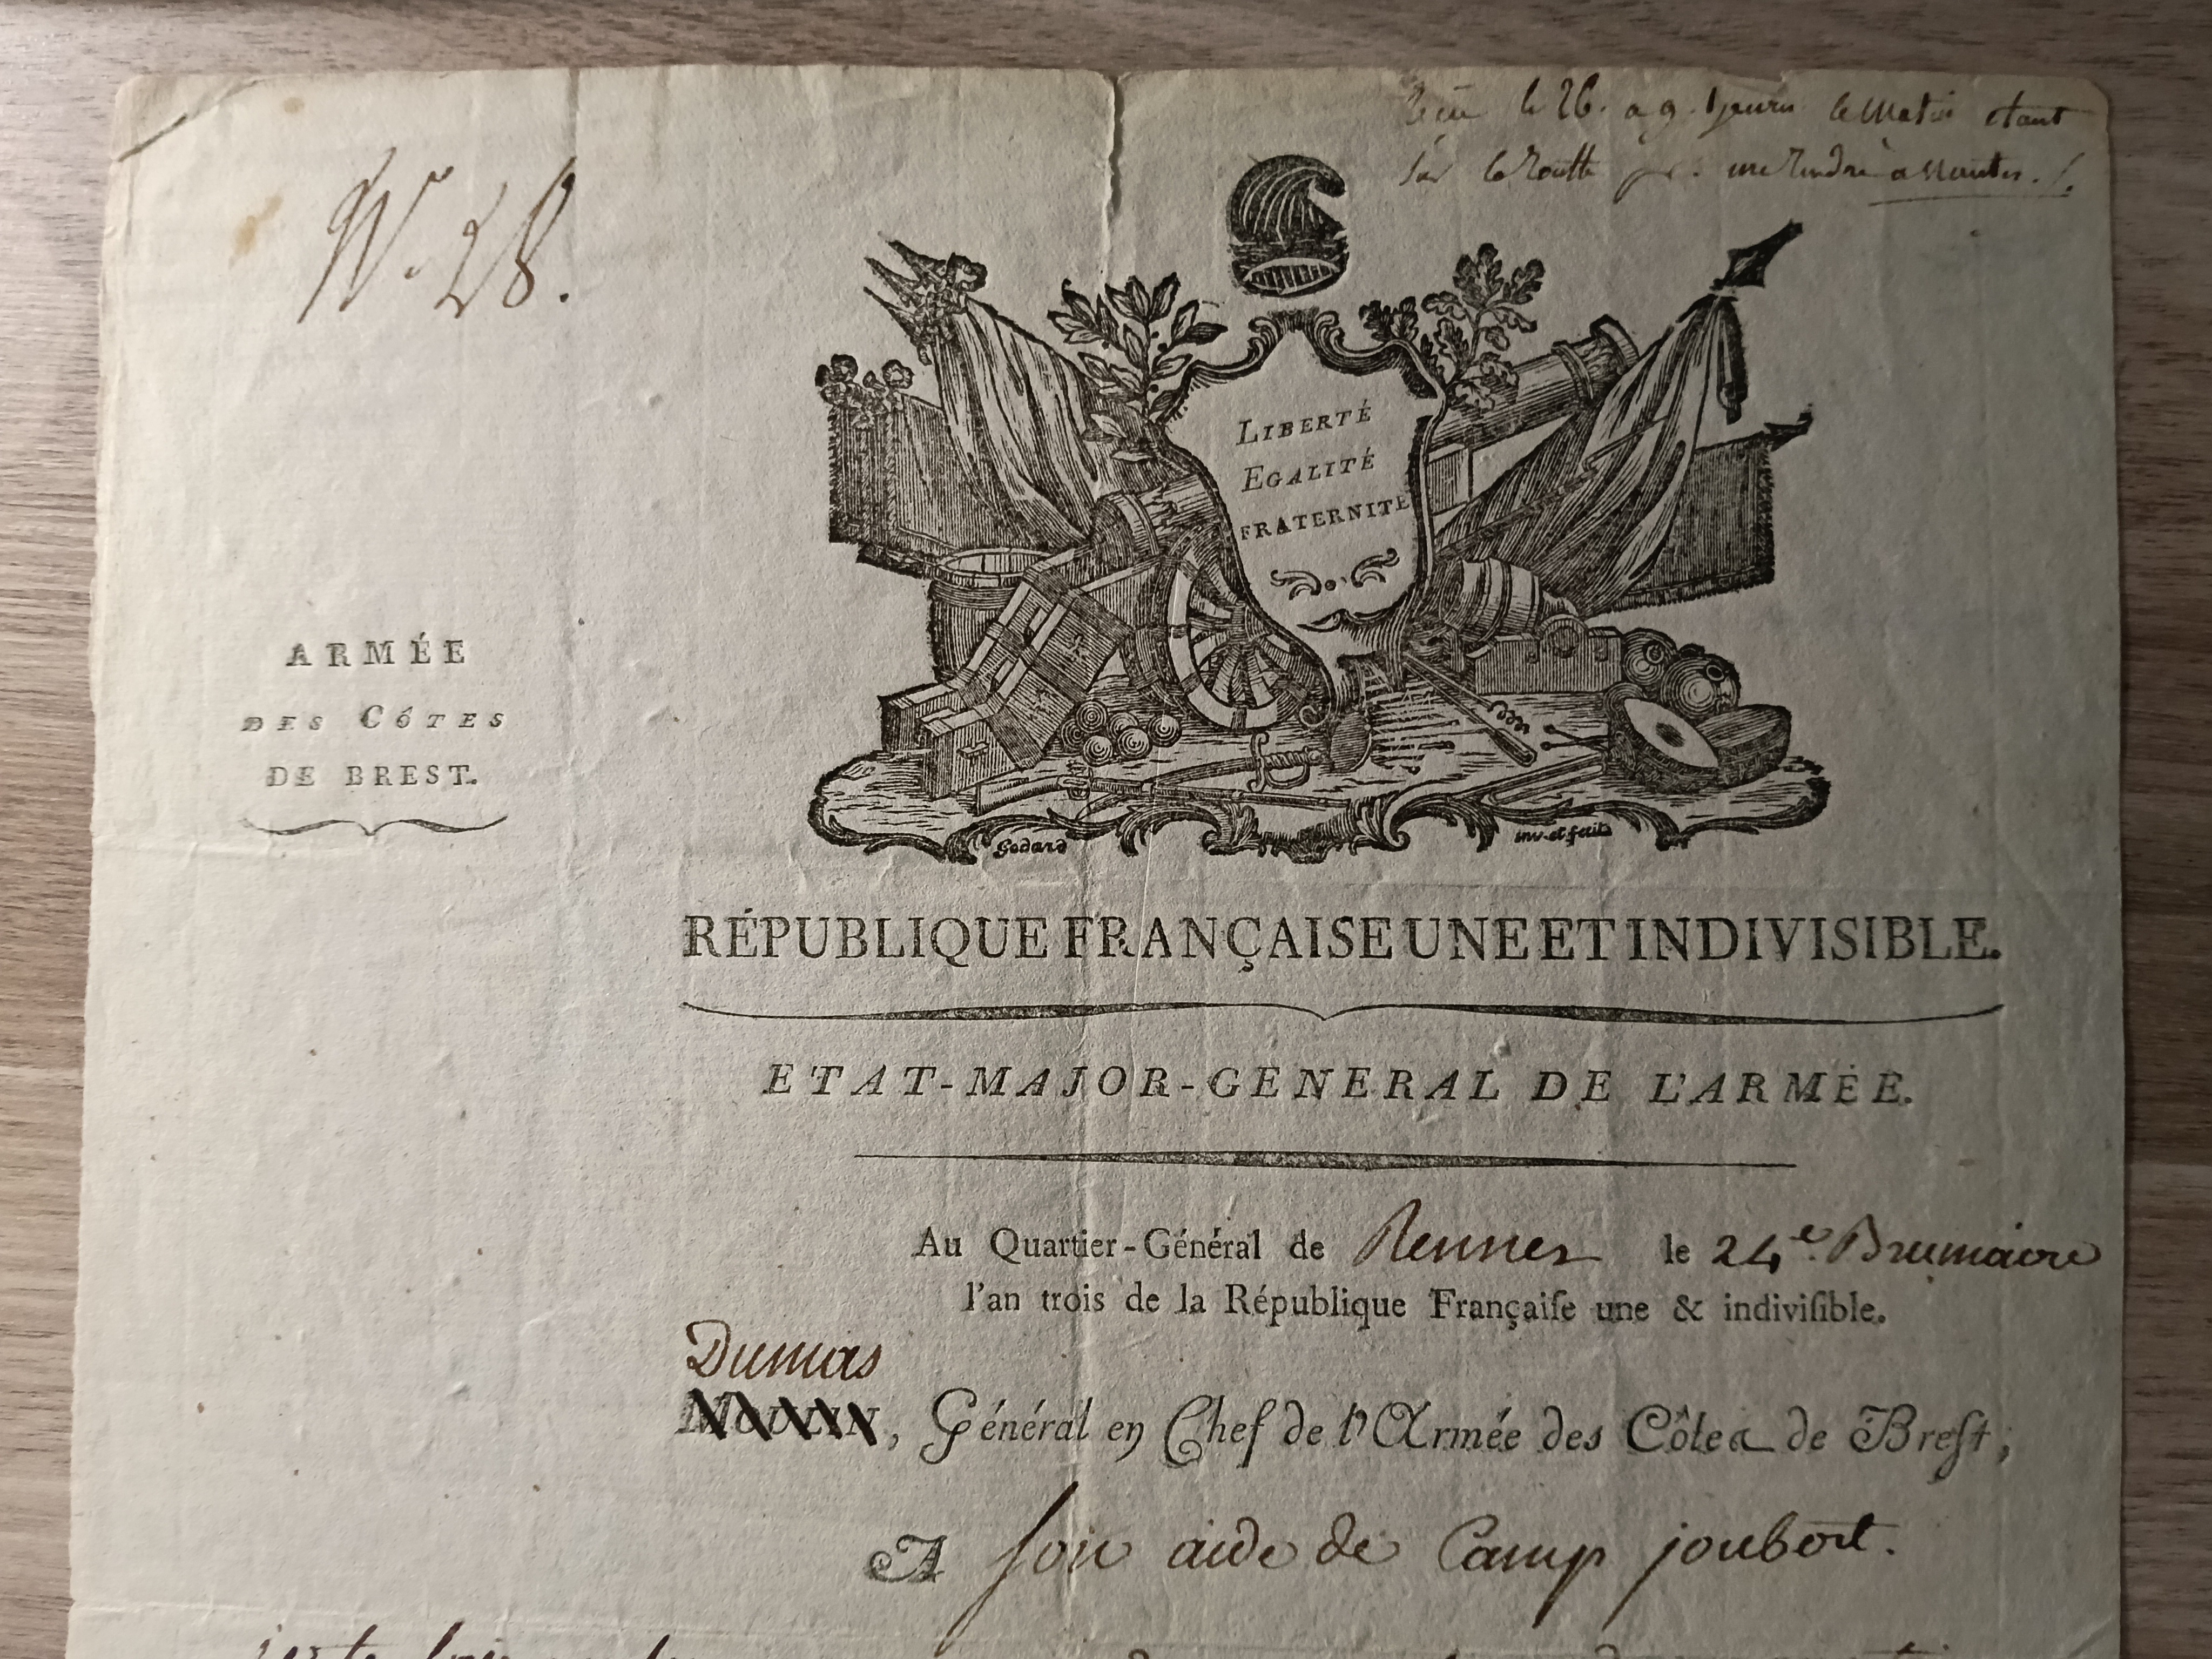 Reçu le 26. a 9. heures le Matin etant
sur la Routte pr. me Rendre a Nantes./.
N.° 28.
LIBERTÉ
EGALITÉ
FRATERNITÉ
ARMÉE
DES CÔTES
DE BREST.
Godard inv. et fecit
RÉPUBLIQUE FRANÇAISE UNE ET INDIVISIBLE.
ETAT-MAJOR-GENERAL DE L'ARMÉE.
Au Quartier-Général de Rennes le 24e. Brumaire
l'an trois de la République Françaiſe une & indiviſible.
Dumas
MOULIN, Général en Chef de l'Armée des Côtes de Breſt,
A son aide de Camp joubert.